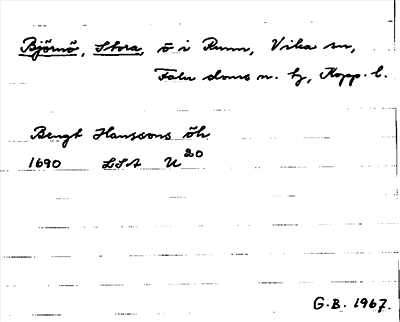 Björnö, Stora, ö i Runn, Vika sn,
Falu doms n. hg, Kopp. l.
Bengt Hanssons öh
1690 LSA U 20
G.B. 1967.